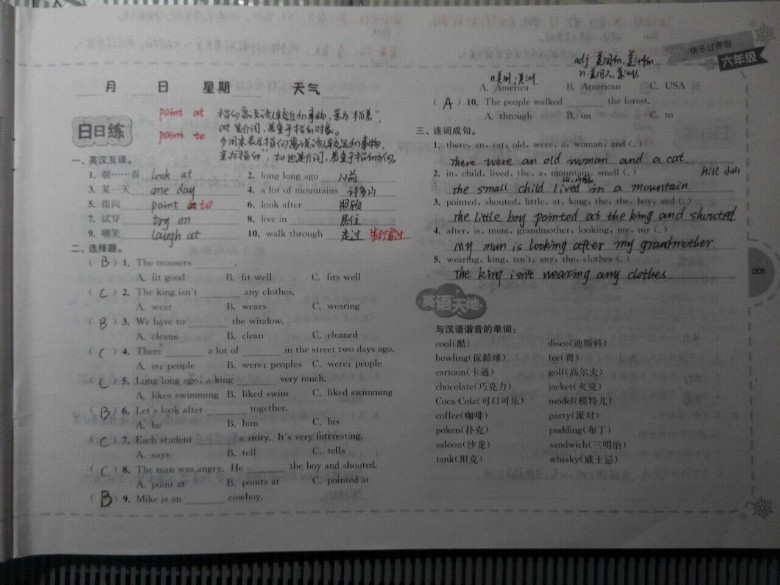 快乐过寒假
六年级
月 日 星期 天气
日日练
point at
point to
一、英汉互译。
1. 朝……看 look at 2. long long ago 以前
3. 某一天 one day 4. a lot of mountains 许多山
5. 指向 point to 6. look after 照顾
7. 试穿 try on 8. live in 居住
9. 嘲笑 laugh at 10. walk through 走过 步行穿过
二、选择题。
( B ) 1. The trousers ______.
A. fit good B. fit well C. fits well
( C ) 2. The king isn't ______ any clothes.
A. wear B. wears C. wearing
( B ) 3. We have to ______ the window.
A. cleans B. clean C. cleaned
( C ) 4. There ______ a lot of ______ in the street two days ago.
A. is; people B. were; peoples C. were; people
( C ) 5. Long long ago, a king ______ very much.
A. likes swimming B. liked swim C. liked swimming
( B ) 6. Let's look after ______ together.
A. he B. him C. his
( C ) 7. Each student ______ a story. It's very interesting.
A. says B. tell C. tells
( C ) 8. The man was angry. He ______ the boy and shouted.
A. point at B. points at C. pointed at
( B ) 9. Mike is an ______ cowboy.
A. America B. American C. USA
( A ) 10. The people walked ______ the forest.
A. through B. on C. to
三、连词成句。
1. there, an, cat, old, were, a, woman, and (.)
There were an old woman and a cat.
2. in, child, lived, the, a, mountain, small (.)
hill 小山
The small child lived in a mountain.
3. pointed, shouted, little, at, king, the, the, boy, and (.)
The little boy pointed at the king and shouted.
4. after, is, mum, grandmother, looking, my, my (.)
My mum is looking after my grandmother.
5. wearing, king, isn't, any, the, clothes (.)
The king isn't wearing any clothes.
英语天地
与汉语谐音的单词：
cool(酷) disco(迪斯科)
bowling(保龄球) fee(费)
cartoon(卡通) golf(高尔夫)
chocolate(巧克力) jacket(夹克)
Coca-Cola(可口可乐) model(模特儿)
coffee(咖啡) party(派对)
poker(扑克) pudding(布丁)
saloon(沙龙) sandwich(三明治)
tank(坦克) whisky(威士忌)